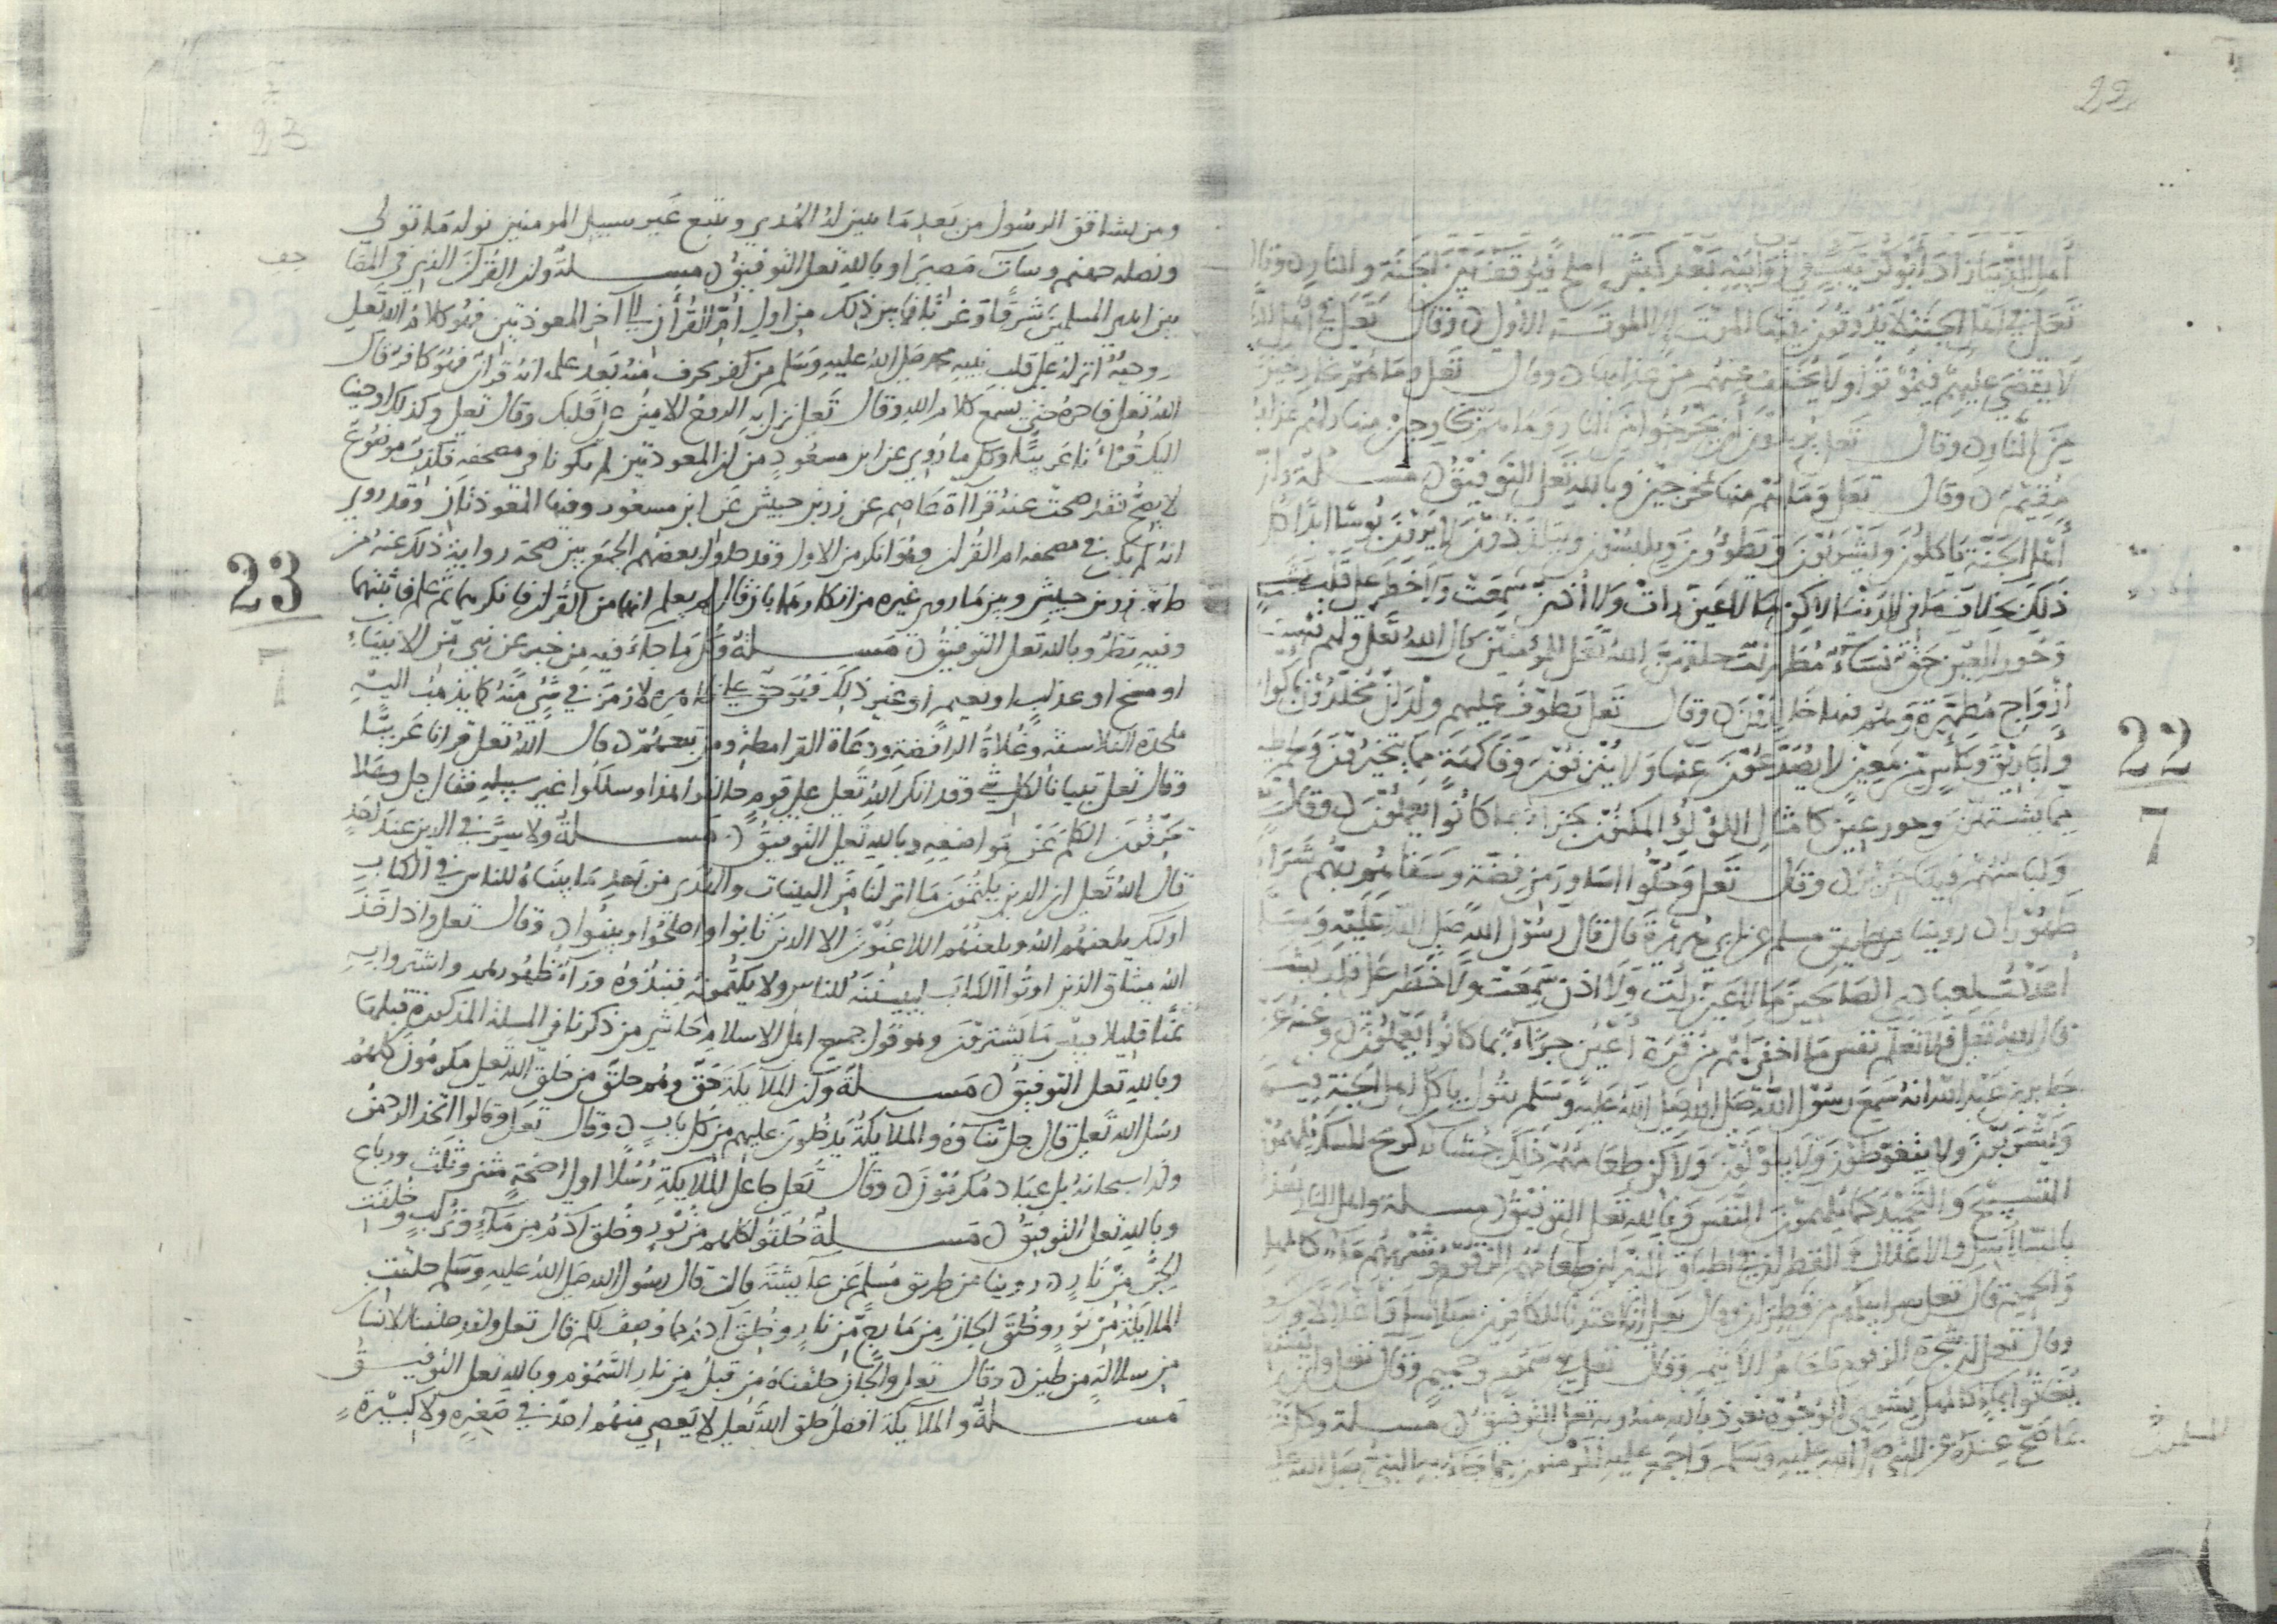 22
أهل النار اذ ابوا
تعلى في اهل الجنة لا يذوقون فيها الموت الا الموتة الاولى وقال تعلى في اهل النار
لا يقضى عليهم فيموتوا ولا يخفف عنهم من عذابها وقال تعلى وما هم بخارجين
من النار وقال تعلى يريدون أن يخرجوا من النار وما هم بخارجين منها ولهم عذاب
مقيم وقال تعلى وما هم منها بمخرجين وبالله تعلى التوفيق مسلة وان
أهل الجنة ياكلون ويشربون ويطؤون ويلبسون ويتلذذون ولا يرون بوسا ابدا وكل
ذلك بخلاف ما في الدنيا لاكن ما لا عين رات ولا أذن سمعت ولا خطر على قلب بشر
وحور العين حق نساء مطهرات خلقهن الله تعلى للمومنين قال الله تعلى ولهم فيها
أزواج مطهرة وهم فيها خالدون وقال تعلى يطوف عليهم ولدان مخلدون باكواب
وأباريق وكاس من معين لا يصدعون عنها ولا ينزفون وفاكهة مما يتخيرون ولحم طير
مما يشتهون وحور عين كامثال اللؤلؤ المكنون جزاء بما كانوا يعملون وقال
ولباسهم فيها حرير وقال تعلى وحلوا اساور من فضة وسقاهم ربهم شرابا
طهورا روينا من طريق مسلم عن ابي هريرة قال قال رسول الله صلى الله عليه وسلم
أعددت لعبادي الصالحين ما لا عين رأت ولا اذن سمعت ولا خطر على قلب بشر
قال الله تعلى فلا تعلم نفس ما اخفي لهم من قرة أعين جزاء بما كانوا يعملون وعنه عن
جابر بن عبد الله انه سمع رسول الله صلى الله عليه وسلم يقول ياكل اهل الجنة فيها
ويشربون ولا يتغوطون ولا يبولون ولاكن طعامهم ذلك جشاء كريح المسك يلهمون
التسبيح والتحميد كما يلهمون النفس وبالله تعلى التوفيق مسلة واهل النار يعذبون
بالسلاسل والاغلال والقطران واطباق النيران طعامهم الزقوم وشربهم ماء كالمهل
والحميم قال تعلى سرابيلهم من قطران وقال تعلى إنا اعتدنا للكافرين سلاسلا وأغلالا وسعيرا
وقال تعلى ان شجرة الزقوم طعام الاثيم وقال تعلى في سموم وحميم وقال تعلى وان يستغيثوا
يغاثوا بماء كالمهل يشوي الوجوه نعوذ بالله منه وبه تعلى التوفيق مسلة وكل من
صح عنده عن النبي صلى الله عليه وسلم واجمع عليه المومنون مما جاء به النبي صلى الله عليه
المسلمون
22
7
23
ومن يشاقق الرسول من بعد ما تبين له الهدى ويتبع غير سبيل المومنين نوله ما تولى
ونصله جهنم وسآت مصيرا وبالله تعلى التوفيق مسلة وان القرآن الذي في المصا
حف
بين ايدي المسلمين شرقا وغربا فما بين ذلك من اول أم القرآن الى آخر المعوذتين فهو كلام الله تعلى
ووحيه انزله على قلب نبيه محمد صلى الله عليه وسلم من كفر بحرف منه بعد علمه انه قرآن فهو كافر قال
الله تعلى فاجره حتى يسمع كلام الله وقال تعلى نزل به الروح الامين على قلبك وقال تعلى وكذلك اوحينا
اليك قرءانا عربيا وكل ما روي عن ابن مسعود من ان المعوذتين لم يكونا في مصحفه فكذب موضوع
لا يصح فقد صحت عنه قرآآة عاصم عن زر بن حبيش عن ابن مسعود وفيها المعوذتان وقد روي
انه لم يكن في مصحفه ام القرآن وهو انكر من الاول وقد حاول بعضهم الجمع بين صحة رواية ذلك عنه من
طريق زر بن حبيش وبين ما روى غيره من انكارهما بان قال لم يعلم انهما من القرآن فانكرهما ثم علم فاثبتهما
وفيه نظر وبالله تعلى التوفيق مسلة وكل ما جاء فيه من خبر عن نبي من الانبياء
او مسخ او عذاب او نعيم او غير ذلك فهو حق على ظاهره لا رمز في شيء منه كما يذهب اليه
ملحدة الفلاسفة وغلاة الرافضة ودعاة القرامطة ومن تبعهم قال الله تعلى قرانا عربيا
وقال تعلى تبيانا لكل شيء وقد انكر الله تعلى على قوم خالفوا هذا وسلكوا غير سبيله فقال جل وعلا
يحرفون الكلم عن مواضعه وبالله تعلى التوفيق مسلة ولا سر في الدين عند احد
قال الله تعلى ان الذين يكتمون ما انزلنا من البينات والهدى من بعد ما بيناه للناس في الكتاب
اوليك يلعنهم الله ويلعنهم اللاعنون الا الذين تابوا واصلحوا وبينوا وقال تعلى واذ اخذ
الله ميثاق الذين اوتوا الكتاب لتبيننه للناس ولا يكتمونه فنبذوه ورآء ظهورهم واشتروا به
ثمنا قليلا فبيس ما يشترون وهو قول جميع اهل الاسلام حاشى من ذكرنا في المسلة المذكورة قبلها
وبالله تعلى التوفيق مسلة وان الملآيكة حق وهم خلق من خلق الله تعلى مكرمون كلهم
رسل الله تعلى قال جل ثناؤه والملايكة يدخلون عليهم من كل باب وقال تعلى وقالوا اتخذ الرحمن
ولدا سبحانه بل عباد مكرمون وقال تعلى جاعل الملايكة رسلا اولي اجنحة مثنى وثلث ورباع
وبالله تعلى التوفيق مسلة خلقوا كلهم من نور وخلق آدم من ماء وتراب وخلقت
الجن من نار روينا من طريق مسلم عن عآيشة قالت قال رسول الله صلى الله عليه وسلم خلقت
الملايكة من نور وخلق الجان من مارج من نار وخلق آدم مما وصف لكم قال تعلى ولقد خلقنا الانسان
من سلالة من طين وقال تعلى والجان خلقناه من قبل من نار السموم وبالله تعلى التوفيق
مسلة والملآيكة افضل خلق الله تعلى لا يعصي منهم احد في صغيرة ولا كبيرة
23
7